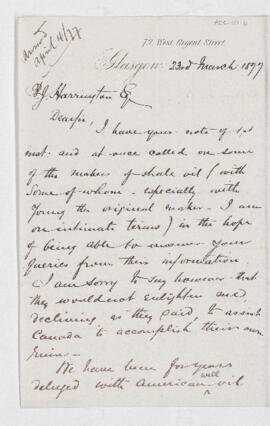 79, West Regent Street,
Glasgow 23rd March 1877
April
B J Harrington Esq
Dear Sir,
I have your note of 1st
inst: and at once called on some
of the makers of shale oil (with
some of whom - especially with
Young the original maker - I am
on intimate terms) in the hope
of being able to answer your
queries from their information.
I am sorry to say however that
they would not enlighten me,
declining as they said, to assist
Canada to accomplish their own
ruin.
We have been for years
deluged with American oil
will